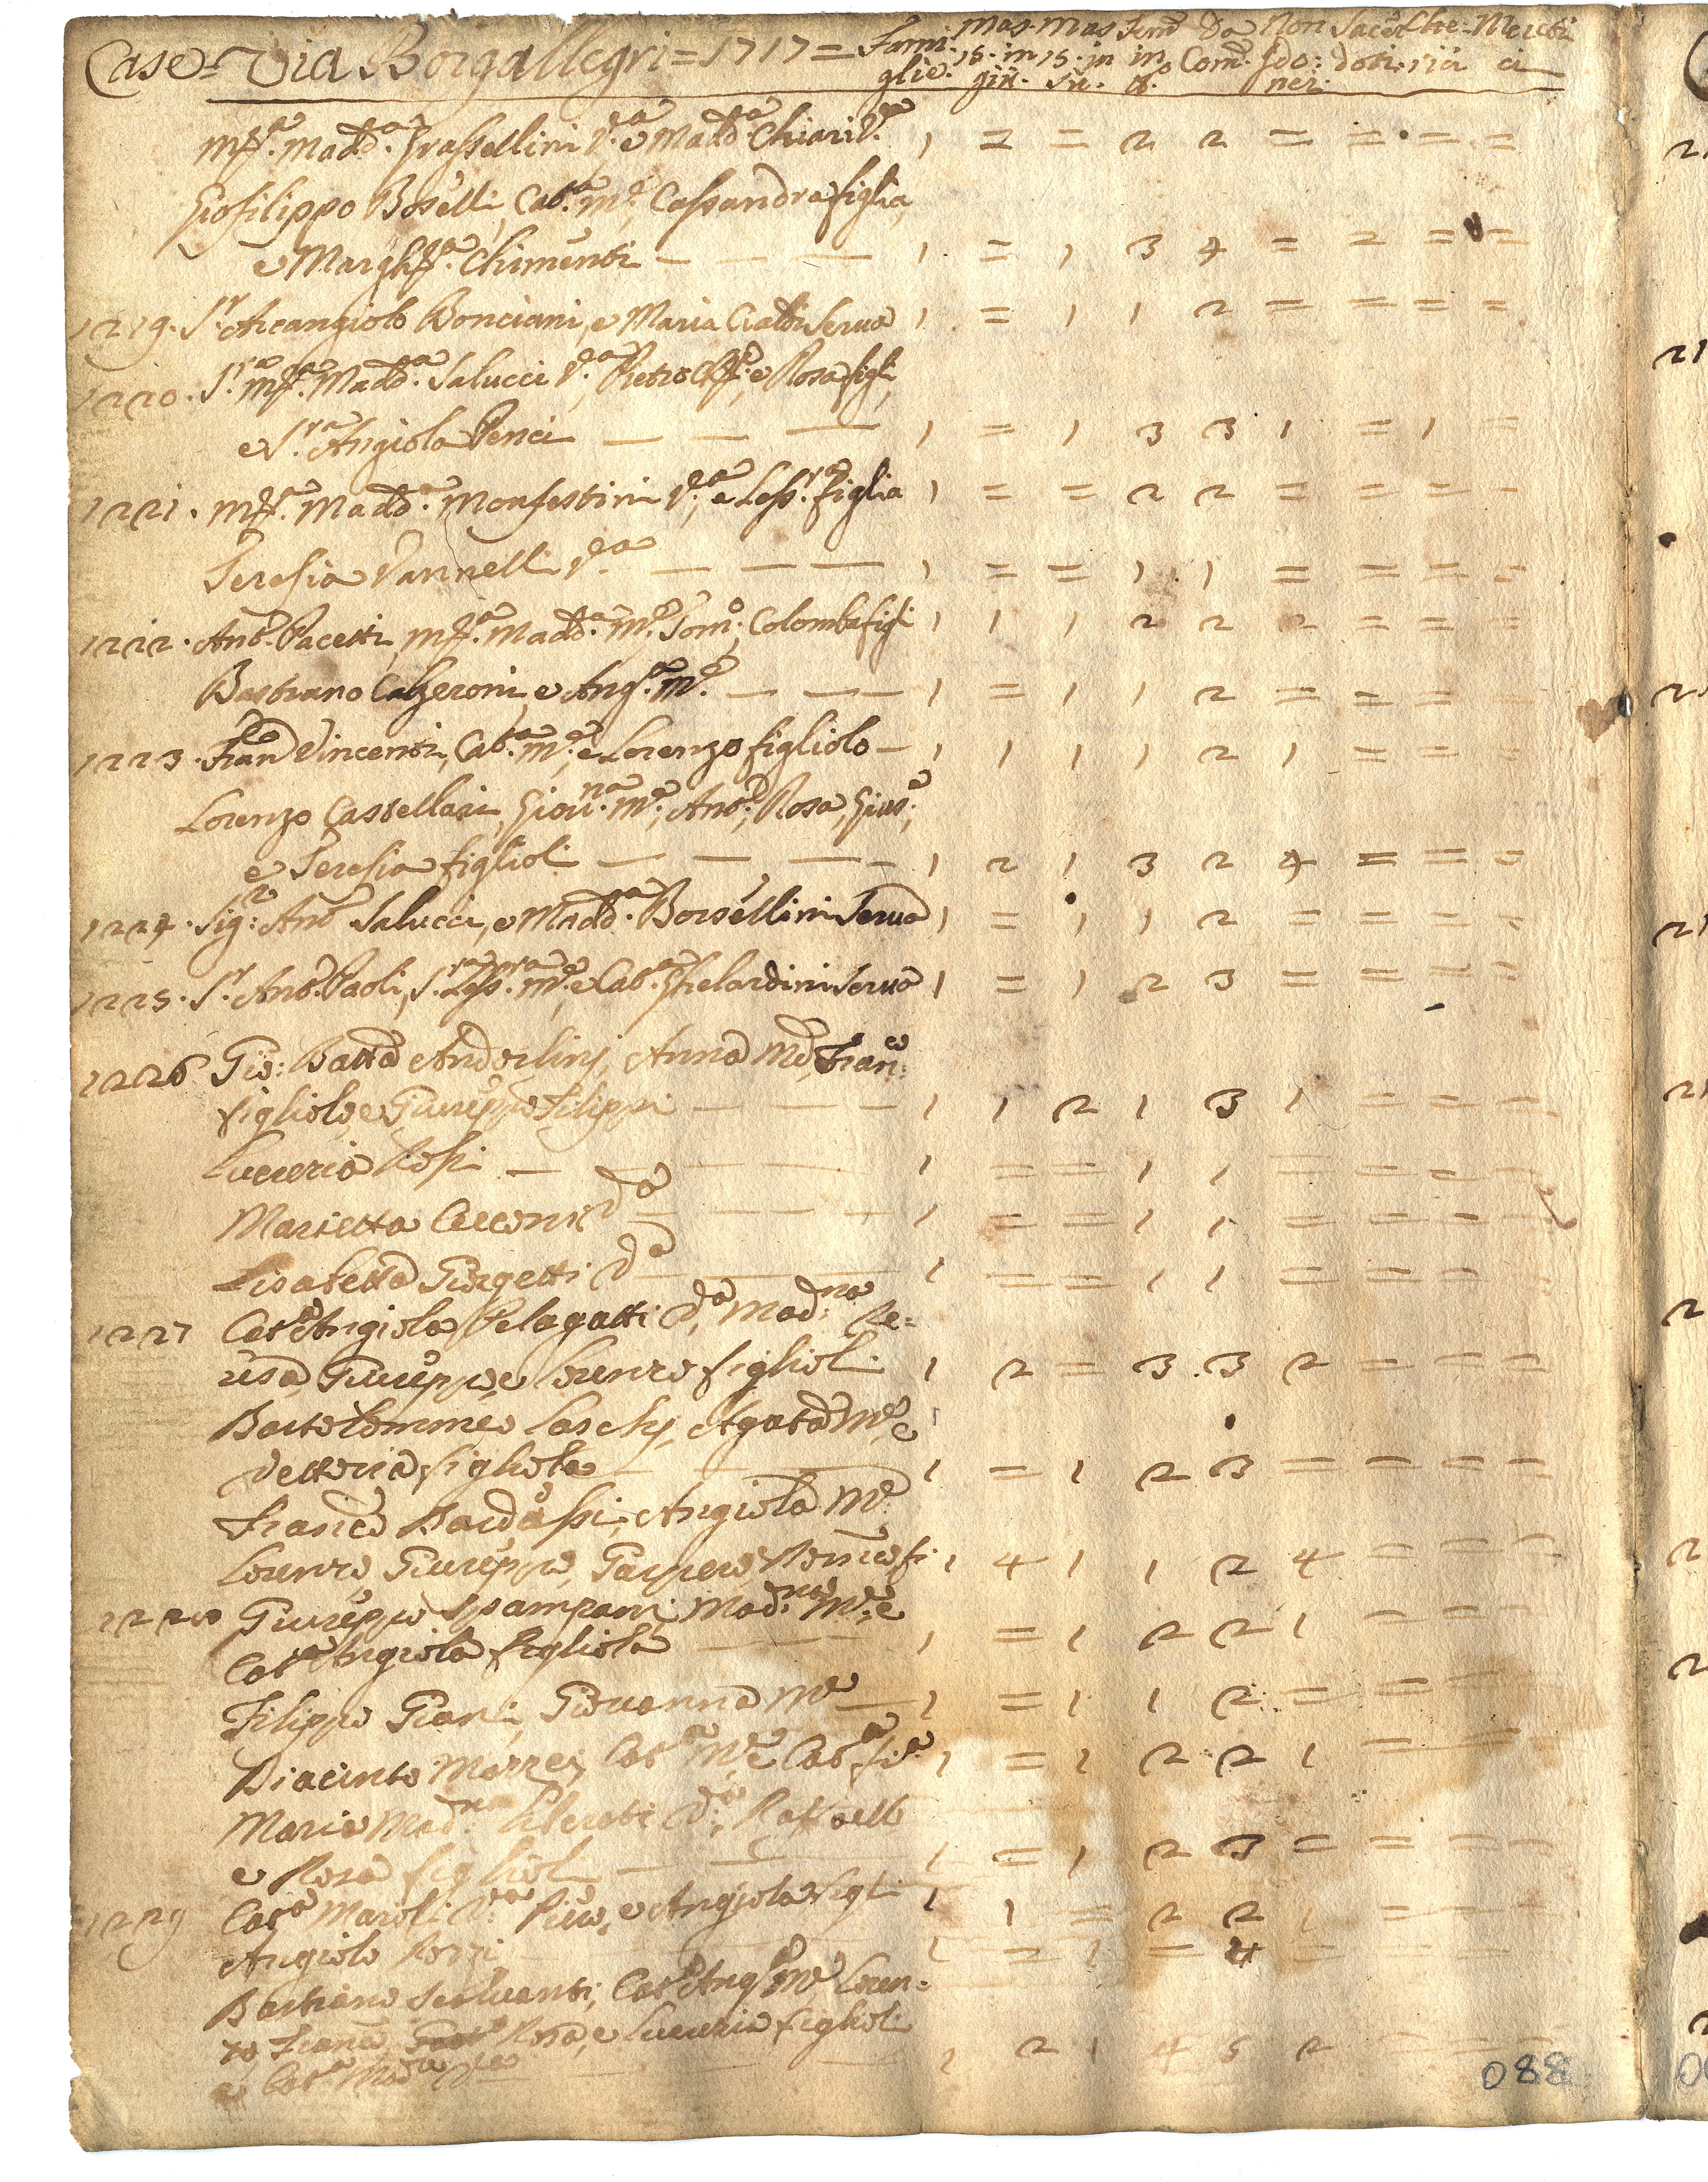 Case = Via Borgallegri = 1717 = Fami: Mas. Mas Fem: Da Non Sacer Che= Meret:
glie. 15. in 15. in in Com. Sdo: doti. rici ci
giù. sù. tto. nez.
M.ª Madd.ª Grassellini V.ª e Madd.ª Chiari V.ª 1 = = 2 2 = = = =
Giofilippo Boselli, Cat.ª m.e Cassandra figlia,
e Margh.ª Chimenti — — — 1 = 1 3 4 = 2 = =
1219. S.r Arcangiolo Bonciani, e Maria Serva 1 = 1 1 2 = = = =
1220. S.ra M.ª Madd.ª Salucci V.ª, Pietro e Rosa figli,
e S.ra Angiola Penci — — — 1 = 1 3 3 1 = 1 =
1221. M.ª Madd.ª Monsestini V.ª, e Less.ra figlia 1 = = 2 2 = = = -
Teresia Vannelli V.ª — — — 1 = = 1 1 = = = =
1222. Ant.º Pacetti, M.ª Madd.ª M.e Tom.º, Colomba figli 1 1 1 2 2 2 = = =
Bastiano Calzeroni, e Ang.ª M.e — — — 1 = 1 1 2 = = = =
1223. Fran.co Vincenti, Cat.ª M.e, e Lorenzo figliolo — 1 1 1 1 2 1 = = =
Lorenzo Castellari, Giov.na M.e, Ant.º, Rosa, Gius.e,
e Teresia figlioli — — — 1 2 1 3 2 4 = = =
1224. Sig.r Ant.º Salucci, e Madd.ª Borsellini Serva 1 = 1 1 2 = = = =
1225. S.r Ant.º Paoli, S.ra Less.ra M.e, e Cat.ª Ghelardini Serva 1 = 1 2 3 = = = =
1226 Gio: Batta Anderlini, Anna M.e, Fran.co
figliolo, e Giuseppe Filippi — — — 1 1 2 1 3 1 = = =
Lucrezia Rossi — — — 1 = = 1 1 = = = =
Marietta Cecconi V.ª — — — 1 = = 1 1 = = = =
Lisabetta Giorgetti V.ª — — 1 = = 1 1 = = = =
1227 Cat.ª Angiola Pelagatti V.ª, Mad:na Te=
resa, Giuseppe, e Lorenzo figlioli 1 2 = 3 3 2 = = =
Bartolommeo Laschi, Agata M.e, e
Vettoria figliola — — — 1 = 1 2 3 = = = =
Franc.o Angiola M.e
Lorenzo, Giuseppe, Gaspero, Romeo fi. 1 4 1 1 2 4 = = =
1228 Giuseppe Spampani, Mad:na M.e, e
Cat.ª Angiola figliola — — — 1 = 1 2 2 1 = = =
Filippo Giani, Giovanna M.e — 1 = 1 1 2 = = = =
Diacinto Mazzei, Cat.ª M.e, e Cat.ª fi.ª 1 = 1 2 2 1 = = =
Maria Mad:na V.ª, Raffaello
e Rosa figlioli — — — 1 = 1 2 3 = = = =
1229 Cat.ª Maroli V.ª Piero, e Angiola figli 1 1 = 2 2 1 = = =
Angiolo Rozzi — 1 = 1 = = = = =
Bastiano Cat.ª Ang.ª M.e Loren=
zo, Franc.o, Rosa, e Lucrezia figlioli
e Cat.ª Madre V.ª — — 1 2 1 4 5 2 = = =
088